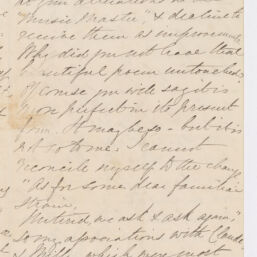 at your alterations in the
"Music Master" & decline to
receive them as improvements.
Why did you not leave that
beautiful poem untouched?
Of course you will say it is
more perfect in its present
form. It may be so - but it is
not so to me. I cannot
reconcile myself to the change
"as for some dear familiar
strain,
Untired, we ask & ask again,"
so my associations with Claude
& Milly which were most